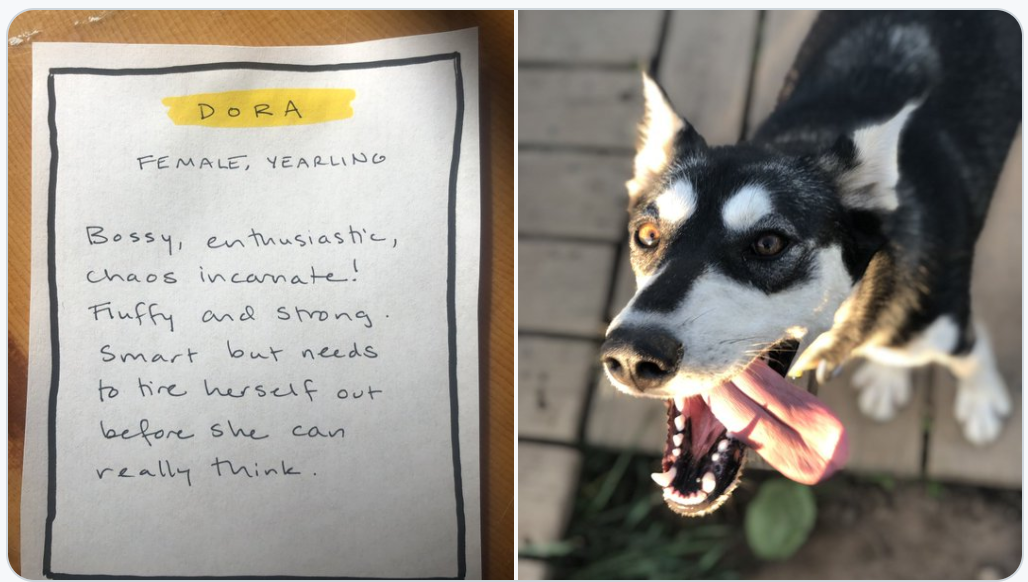 DORA
FEMALE, YEARLING
Bossy, enthusiastic,
chaos incarnate!
Fluffy and strong.
Smart but needs
to tire herself out
before she can
really think.